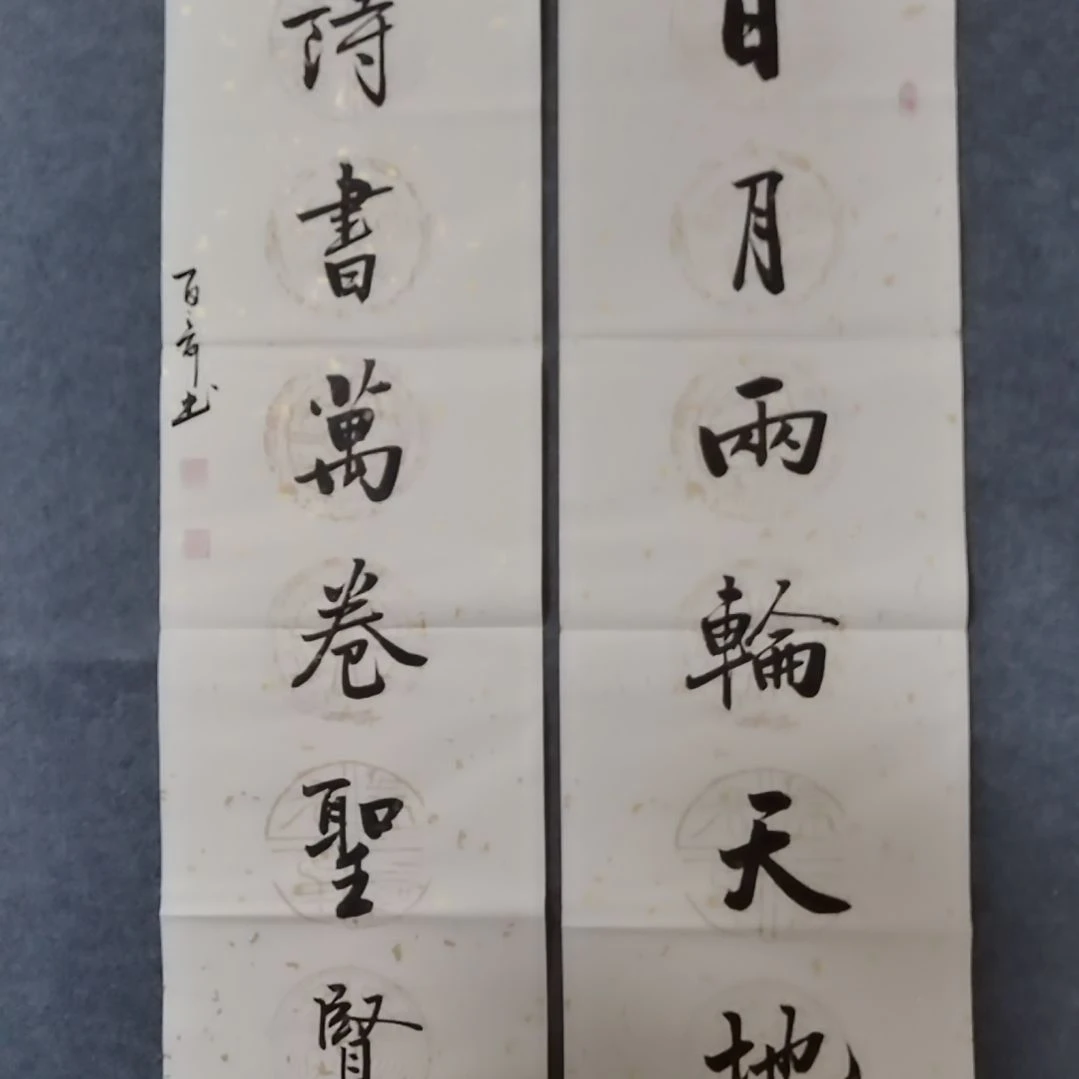 日月兩輪天地
詩書萬卷聖賢
百书